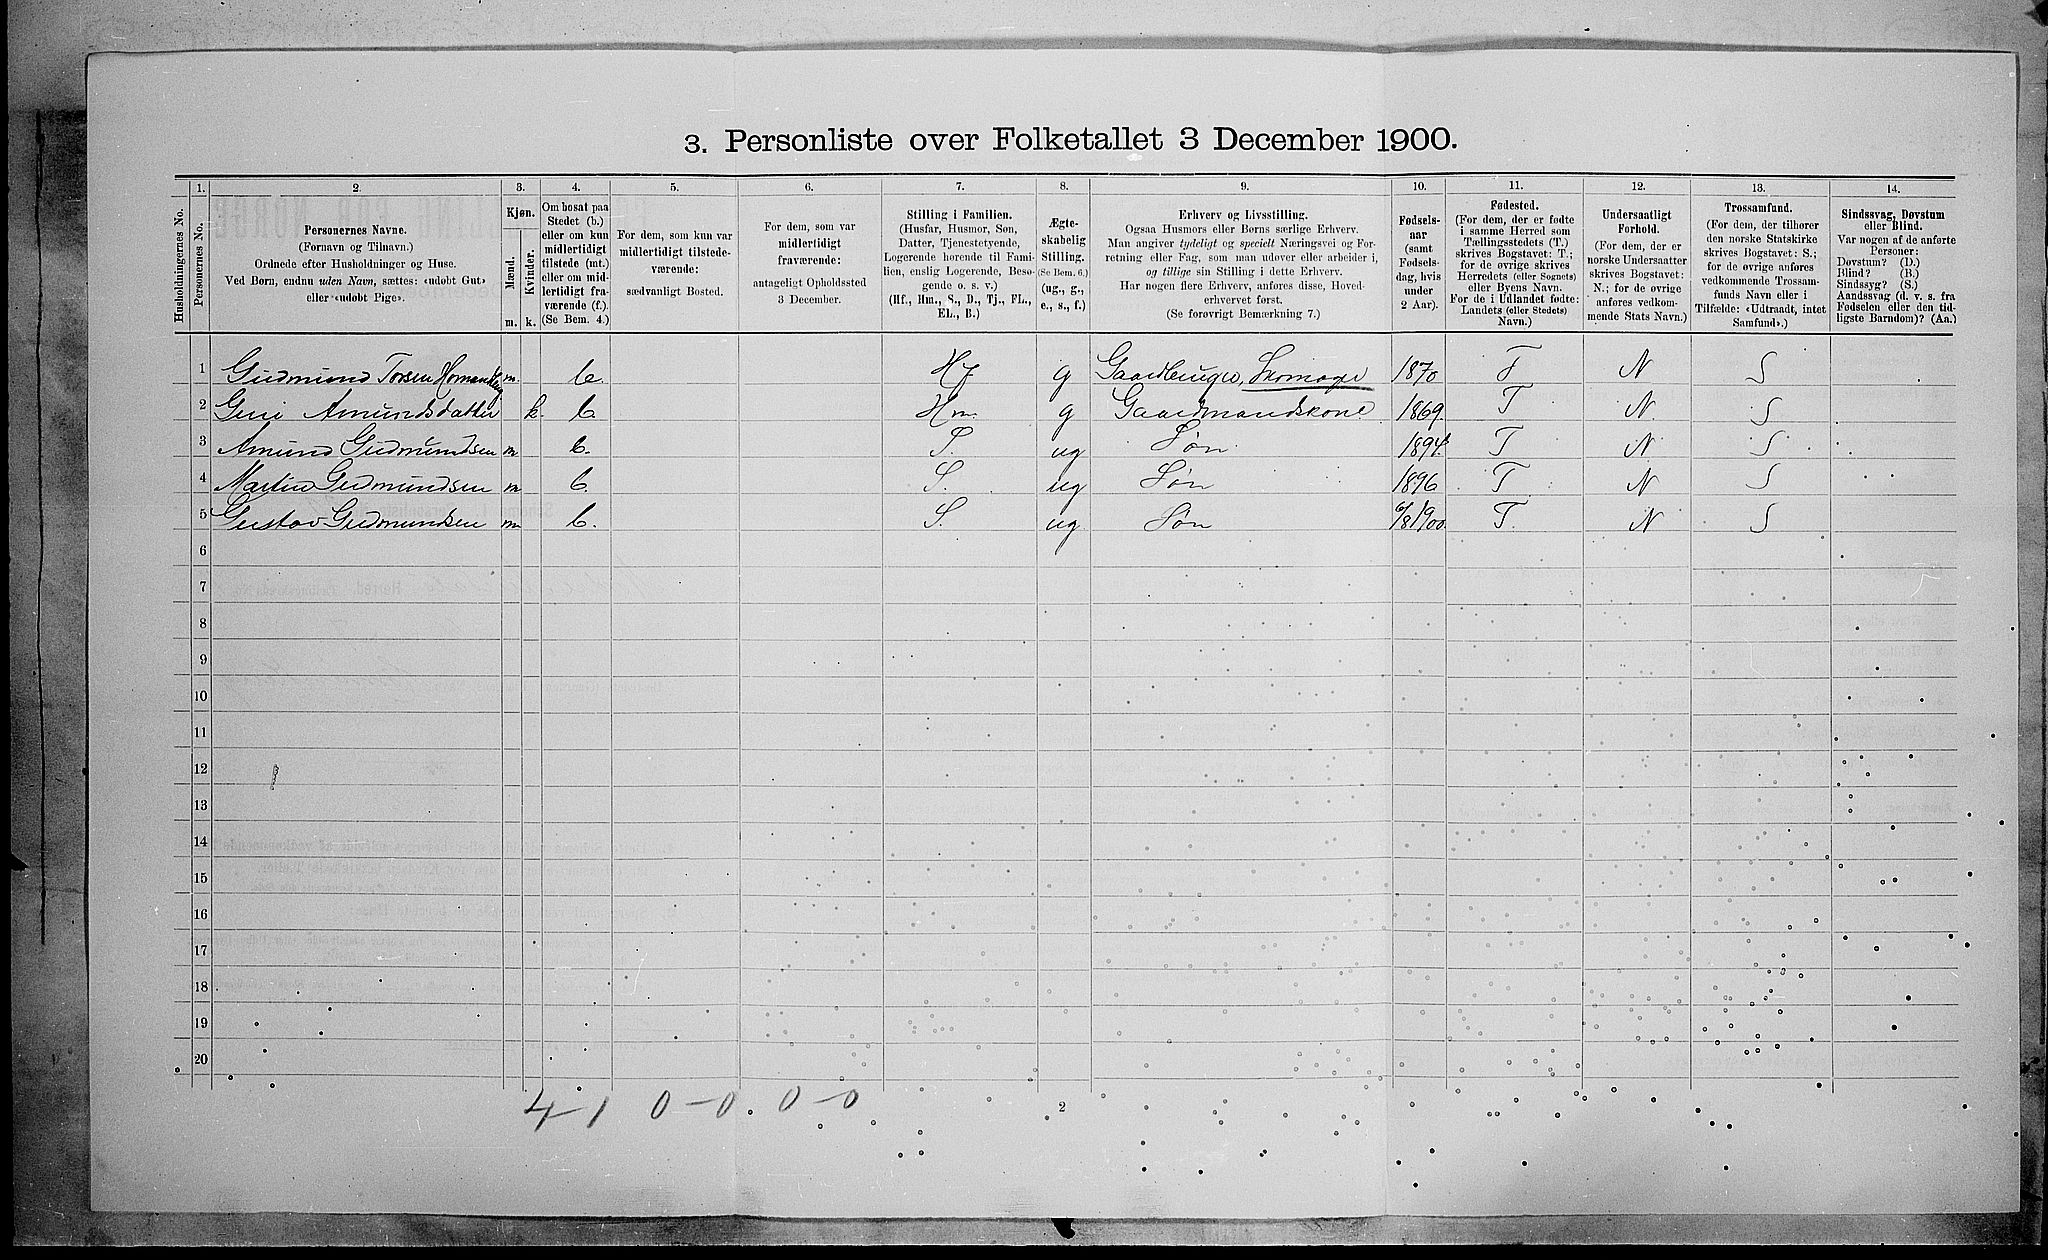 3. Personliste over Folketallet 3 December 1900.
Husholdningernes No.
1.
Personernes No.
2.
Personernes Navne.
(Fornavn og Tilnavn.)
Ordnede efter Husholdninger og Huse.
Ved Børn, endnu uden Navn, sættes: «udøbt Gut»
eller «udøbt Pige».
3.
Kjøn.
Mænd.
Kvinder.
m.
k.
4.
Om bosat paa
Stedet (b.)
eller om kun
midlertidigt
tilstede (mt.)
eller om mid-
lertidigt fra-
værende (f.).
(Se Bem. 4.)
5.
For dem, som kun var
midlertidigt tilstede-
værende:
sædvanligt Bosted.
6.
For dem, som var
midlertidigt
fraværende:
antageligt Opholdssted
3 December.
7.
Stilling i Familien.
(Husfar, Husmor, Søn,
Datter, Tjenestetyende,
Logerende hørende til Fami-
lien, enslig Logerende, Besø-
gende o. s. v.)
(Hf., Hm., S., D., Tj., FL.,
EL., B.)
8.
Ægte-
skabelig
Stilling.
(Se Bem. 6.)
(ug., g.,
e., s., f.)
9.
Erhverv og Livsstilling.
Ogsaa Husmors eller Børns særlige Erhverv.
Man angiver tydeligt og specielt Næringsvei og For-
retning eller Fag, som man udøver eller arbeider i,
og tillige sin Stilling i dette Erhverv.
Har nogen flere Erhverv, anføres disse, Hoved-
erhvervet først.
(Se forøvrigt Bemærkning 7.)
10.
Fødsels-
aar
(samt
Fødsels-
dag, hvis
under
2 Aar).
11.
Fødested.
(For dem, der er fødte
i samme Herred som
Tællingsstedets (T.)
skrives Bogstavet: T.;
for de øvrige skrives
Herredets (eller Sognets)
eller Byens Navn.
For de i Udlandet fødte:
Landets (eller Stedets)
Navn.)
12.
Undersaatligt
Forhold.
(For dem, der er
norske Undersaatter
skrives Bogstavet:
N.; for de øvrige
anføres vedkom-
mende Stats Navn.)
13.
Trossamfund.
(For dem, der tilhører
den norske Statskirke
skrives Bogstavet: S.;
for de øvrige anføres
vedkommende Trossam-
funds Navn eller i
Tilfælde: «Udtraadt, intet
Samfund».)
14.
Sindssvag, Døvstum
eller Blind.
Var nogen af de anførte
Personer:
Døvstum? (D.)
Blind? (B.)
Sindssyg? (S.)
Aandssvag (d. v. s. fra
Fødselen eller den tid-
ligste Barndom)? (Aa.)
1 Gudmund Torsen m. b. Hf g Gaardbruger, Skomager 1870 T N S
2 Guri Amundsdatter k. b Hm. g Gaardmandskone 1869. T N. S
3 Amund Gudmundsen m b. S. ug Søn 1894. T N. S
4 Martin Gudmundsen m b. S. ug Søn 1896 T N S
5 Gustav Gudmundsen m. b. S. ug Søn 6/8 1900. T. N S
6
7
8
9
10
11
12
13
14
15
16
17
18
19
20
4-1 0-0.0-0
2